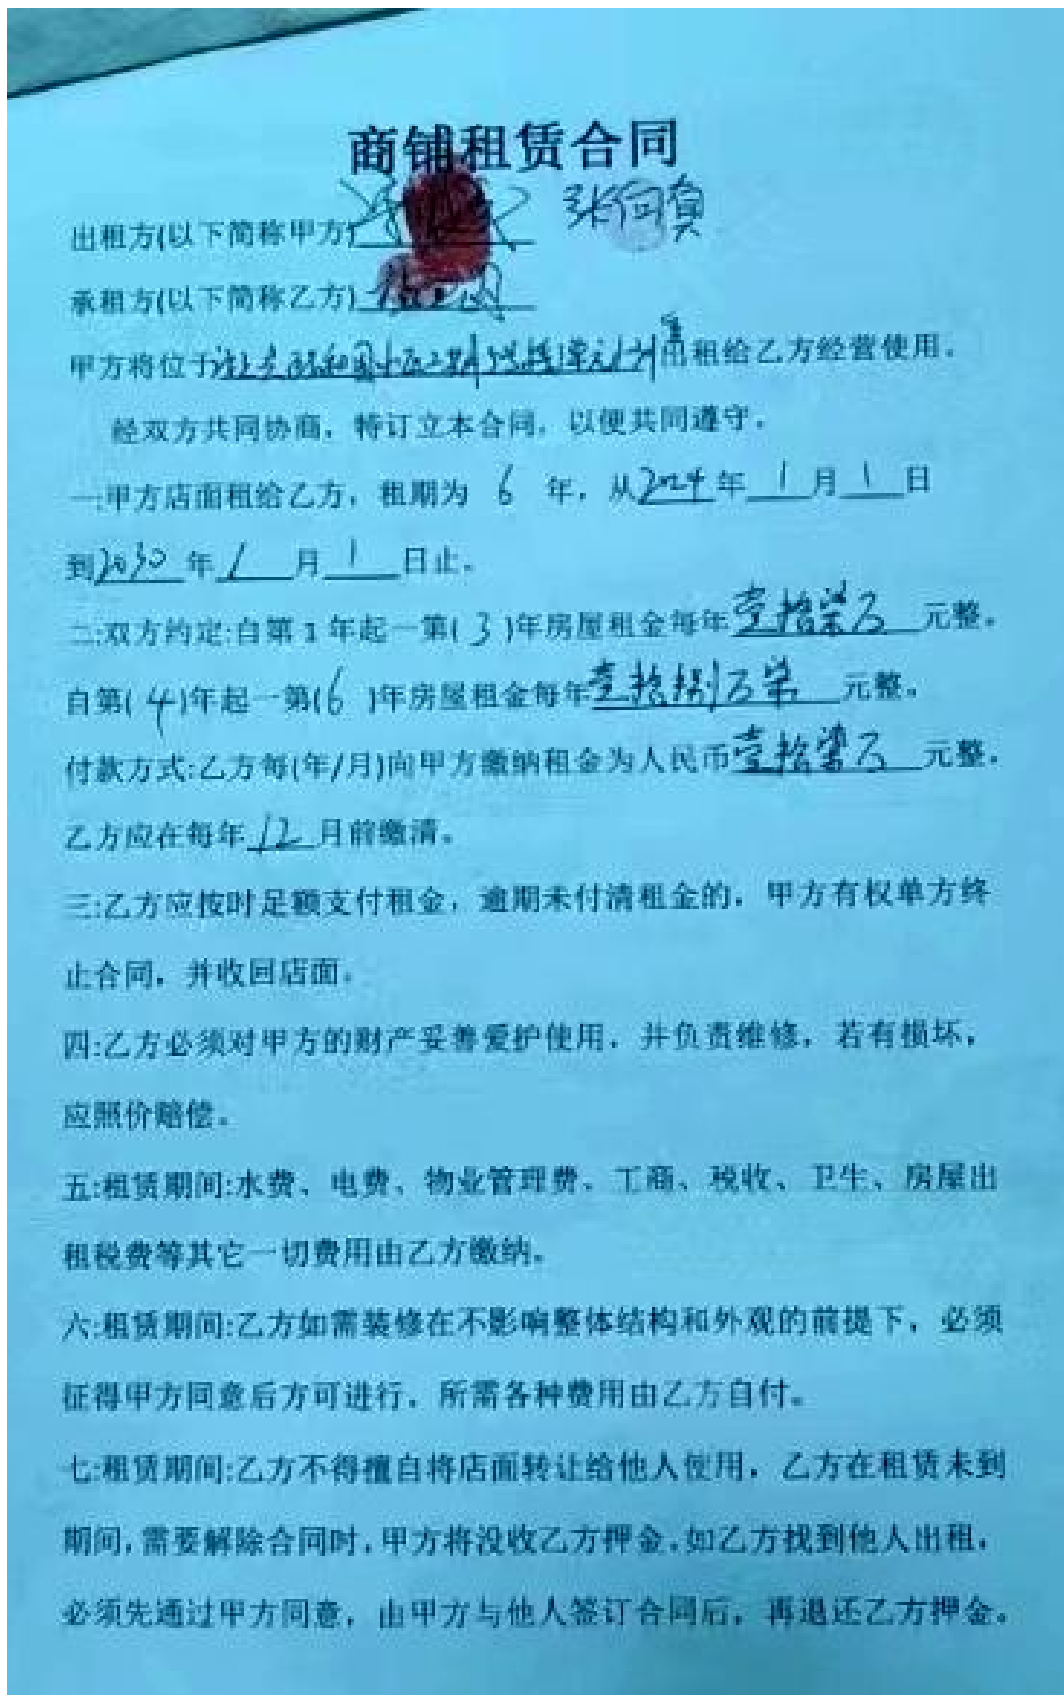 商铺租赁合同
出租方(以下简称甲方) 张向负
承租方(以下简称乙方)
甲方将位于 出租给乙方经营使用。
经双方共同协商，特订立本合同，以便共同遵守。
一:甲方店面租给乙方，租期为 6 年，从2024年 1 月 1 日
到2030年 1 月 1 日止。
二:双方约定:自第1年起一第( 3 )年房屋租金每年壹拾柒万元整。
自第( 4 )年起一第( 6 )年房屋租金每年壹拾捌万柒元整。
付款方式:乙方每(年/月)向甲方缴纳租金为人民币壹拾柒万元整。
乙方应在每年12月前缴清。
三:乙方应按时足额支付租金，逾期未付清租金的，甲方有权单方终
止合同，并收回店面。
四:乙方必须对甲方的财产妥善爱护使用，并负责维修，若有损坏，
应照价赔偿。
五:租赁期间:水费、电费、物业管理费、工商、税收、卫生、房屋出
租税费等其它一切费用由乙方缴纳。
六:租赁期间:乙方如需装修在不影响整体结构和外观的前提下，必须
征得甲方同意后方可进行，所需各种费用由乙方自付。
七:租赁期间:乙方不得擅自将店面转让给他人使用，乙方在租赁未到
期间,需要解除合同时,甲方将没收乙方押金,如乙方找到他人出租，
必须先通过甲方同意，由甲方与他人签订合同后，再退还乙方押金。